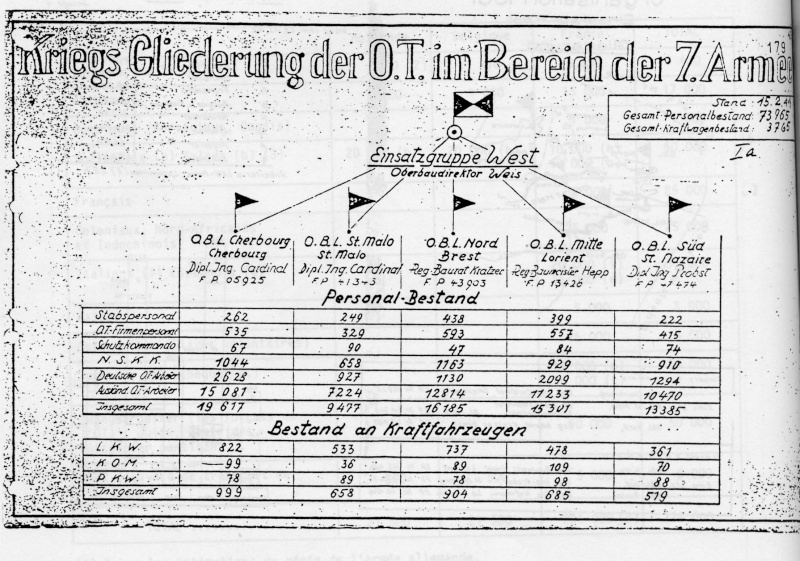 179
Kriegs Gliederung der O.T. im Bereich der 7. Armee
Stand: 15.2.44
Gesamt-Personalbestand: 73 965
Gesamt-Kraftwagenbestand: 3765
Ia
Einsatzgruppe West
Oberbaudirektor Weis
O.B.L. Cherbourg O.B.L. St. Malo O.B.L. Nord O.B.L. Mitte O.B.L. Süd
Cherbourg St. Malo Brest Lorient St. Nazaire
Dipl. Ing. Cardinal Dipl. Ing. Cardinal Reg-Baurat Kratzer Reg Baumeister Hepp Dipl Ing Probst
F P 05925 F P F P 43903 F.P. 13426 F P
Personal-Bestand
Stabspersonal 262 249 438 399 222
O.T-Firmenpersonal 535 329 593 557 415
Schutzkommando 67 90 47 84 74
N. S. K. K. 1044 658 1163 929 910
Deutsche O.T-Arbeiter 2628 927 1130 2099 1294
Ausländ. O.T-Arbeiter 15 081 7224 12814 11233 10470
Insgesamt 19 617 9477 16 185 15 301 13 385
Bestand an Kraftfahrzeugen
L. K. W. 822 533 737 478 361
K. O. M. 99 36 89 109 70
P. K. W. 78 89 78 98 88
Insgesamt 999 658 904 685 519